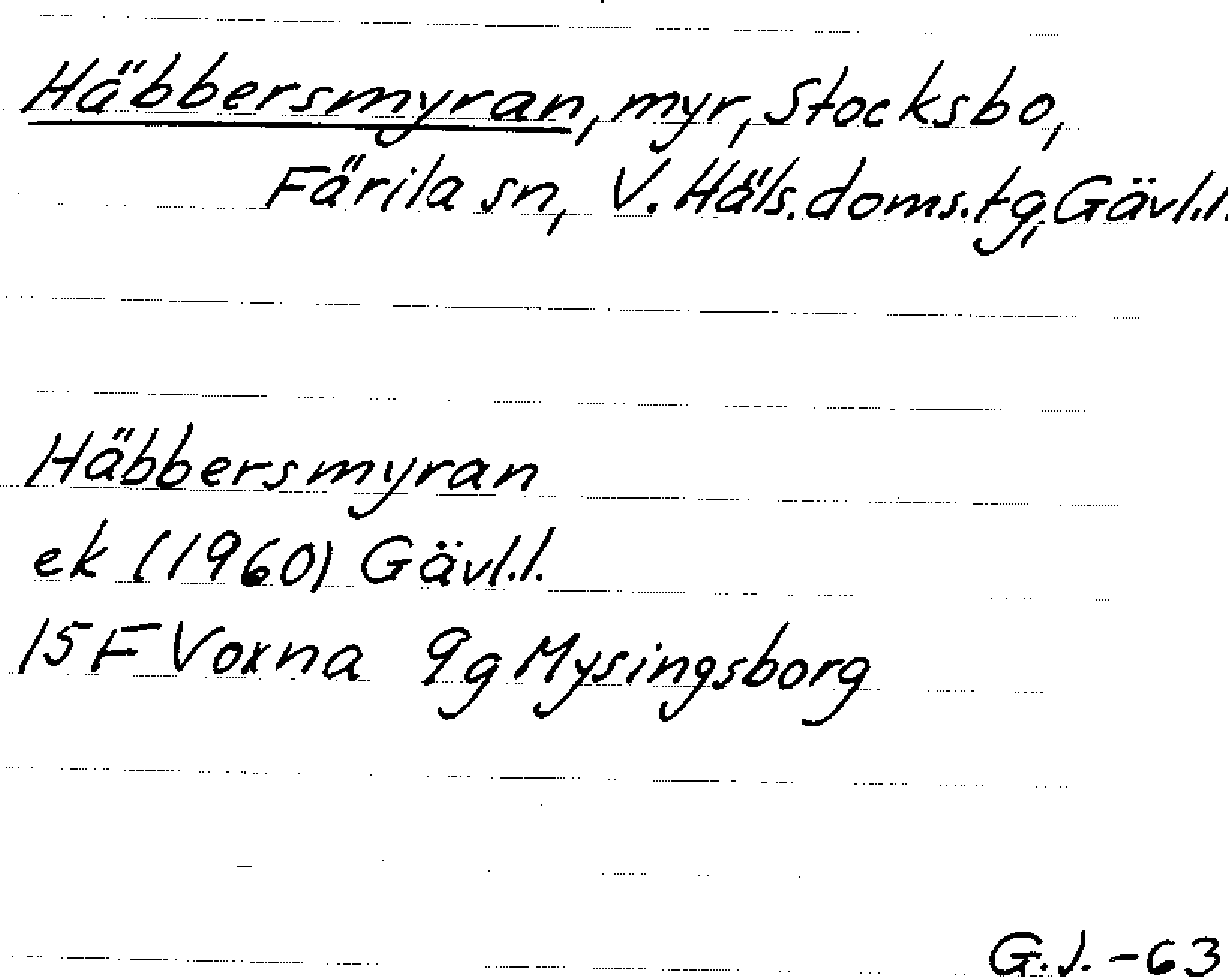 Häbbersmyran, myr, Stocksbo,
Färila sn, V. Häls. doms. tg, Gävl.l.
Häbbersmyran
ek (1960) Gävl.l.
15F Voxna 9g Mysingsborg
G.J. -63